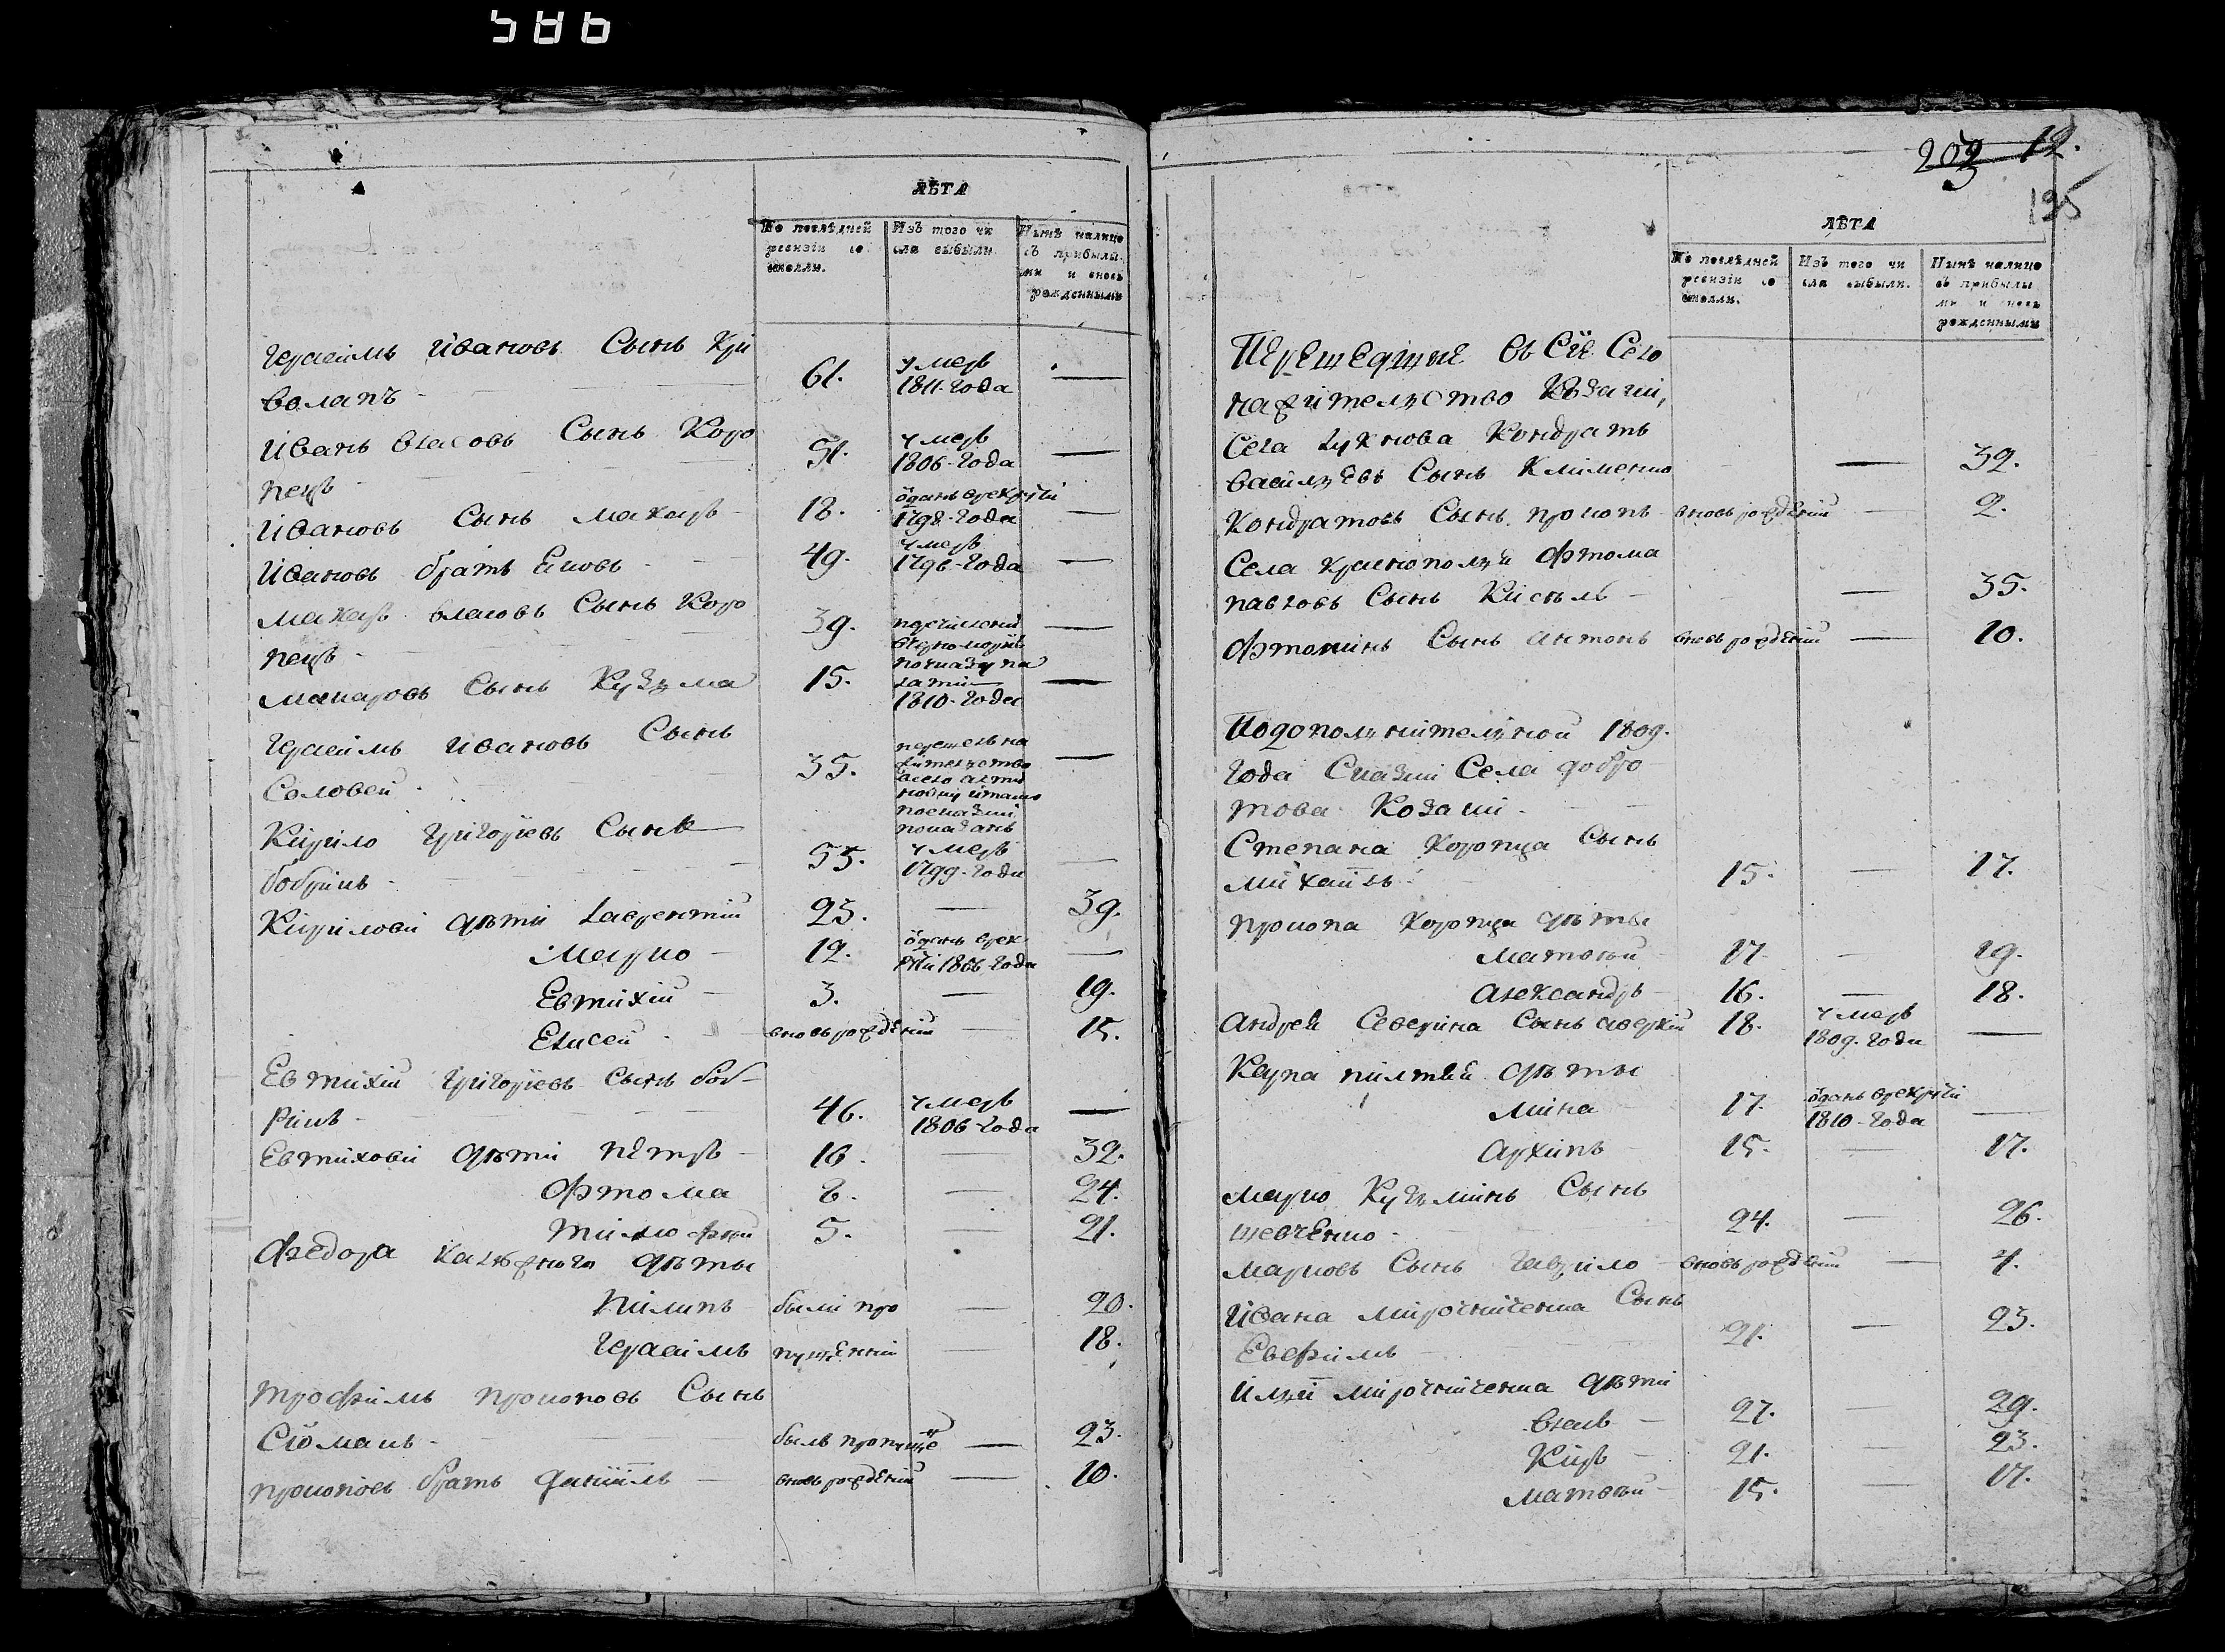 586
ЛѢТА
По послѣдней
ревизіи со
стояли.
Изъ того чи
сла выбыли.
Нынѣ налицо
съ прибылы
ми и вновь
рожденными
Герасимъ Ивановъ Сынъ Кри
волапъ
61.
умеръ
1811. Года
—
Иванъ Власовъ Сынъ Коро
пецъ
51.
умеръ
1806. Года
—
Ивановъ Сынъ Макаръ
18.
ѿданъ врекруті
1798. Года
—
Ивановъ братъ
49.
умеръ
1796. Года
—
Макаръ Власовъ Сынъ Коро
пецъ
39.
—
Макаровъ Сынъ Кузьма
15.
1810. Года
—
Герасимъ Ивановъ Сынъ
Соловей
35.
перешелъ на
жителство
—
Кирило Григоріевъ Сынъ
бобринъ
55.
умеръ
1799. Года
—
Кириловы дѣти Лаврентій
25.
—
39.
Марко
12.
ѿданъ врек
руті 1806. Года
—
Евтихій
3.
—
19.
Елисей
вновь рожденій
—
15.
Евтихій Григоріевъ Сынъ боб
ринъ
46.
умеръ
1806. Года
—
Евтиховы дѣти Петръ
16.
—
32.
Фтома
8.
—
24.
Тимофей
5.
—
21.
Федора Калюжного дѣты
Пилипъ
были про
—
20.
Герасимъ
пущеніи
—
18.
Трофимъ Прокоповъ Сынъ
Сюмакъ
былъ пропуще
—
23.
Прокоповъ братъ Даніилъ
вновь рожденій
—
10.
203 12.
195
ЛѢТА
По послѣдней
ревизіи со
стояли.
Изъ того чи
сла выбыли.
Нынѣ налицо
съ прибылы
ми и вновь
рожденными
Перешедшие въ Сіе Село
нажителзство Козаки,
Села Лукнова Кондратъ
Васильевъ Сынъ Клименко
—
32.
Кондратовъ Сынъ Прокопъ
вновь рожденій
—
2.
Села Краснополя Фтома
Павловъ Сынъ Кисель
—
35.
Фтоминъ Сынъ Антонъ
вновь рожденій
—
10.
Подополнителной 1809.
Года Сказки Села добро
това Козаки
Степана Коропца Сынъ
Михаилъ
15.
—
17.
Прокопа Коропца дѣты
Матвѣй
17.
—
19.
Александръ
16.
—
18.
Андрей Северина Сынъ Аверкій
18.
умеръ
1809. Года
—
Карпа Пилтяй дѣты
Мина
17.
ѿданъ врекруті
1810. Года
—
Архипъ
15.
—
17.
Марко Кузьминъ Сынъ
Шевченко
24.
—
26.
Марковъ Сынъ Гаврило
вновь рожденій
—
4.
Ивана Мирошниченка Сынъ
Евфимъ
21.
—
23.
Илии Мирошниченка дѣти
Власъ
27.
—
29.
Киръ
21.
—
23.
Матвѣй
15.
—
17.